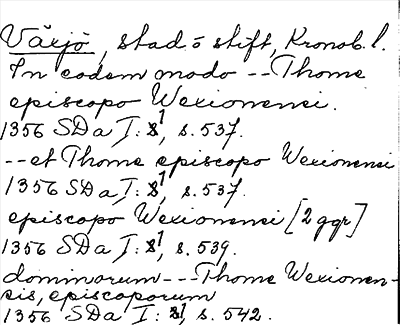 Växjö, stad o stift, Kronob. l.
In eodem modo -- Thome
episcopo Wexionensi.
1356 SDa I: 1, s. 537.
-- et Thome episcopo Wexionensi
1356 SDa I: 1, s. 537.
episcopo Wexionensi [2 ggr]
1356 SDa I: 1, s. 539.
dominorum --- Thome Wexionen-
sis, episcoporum
1356 SDa I: 1, s. 542.